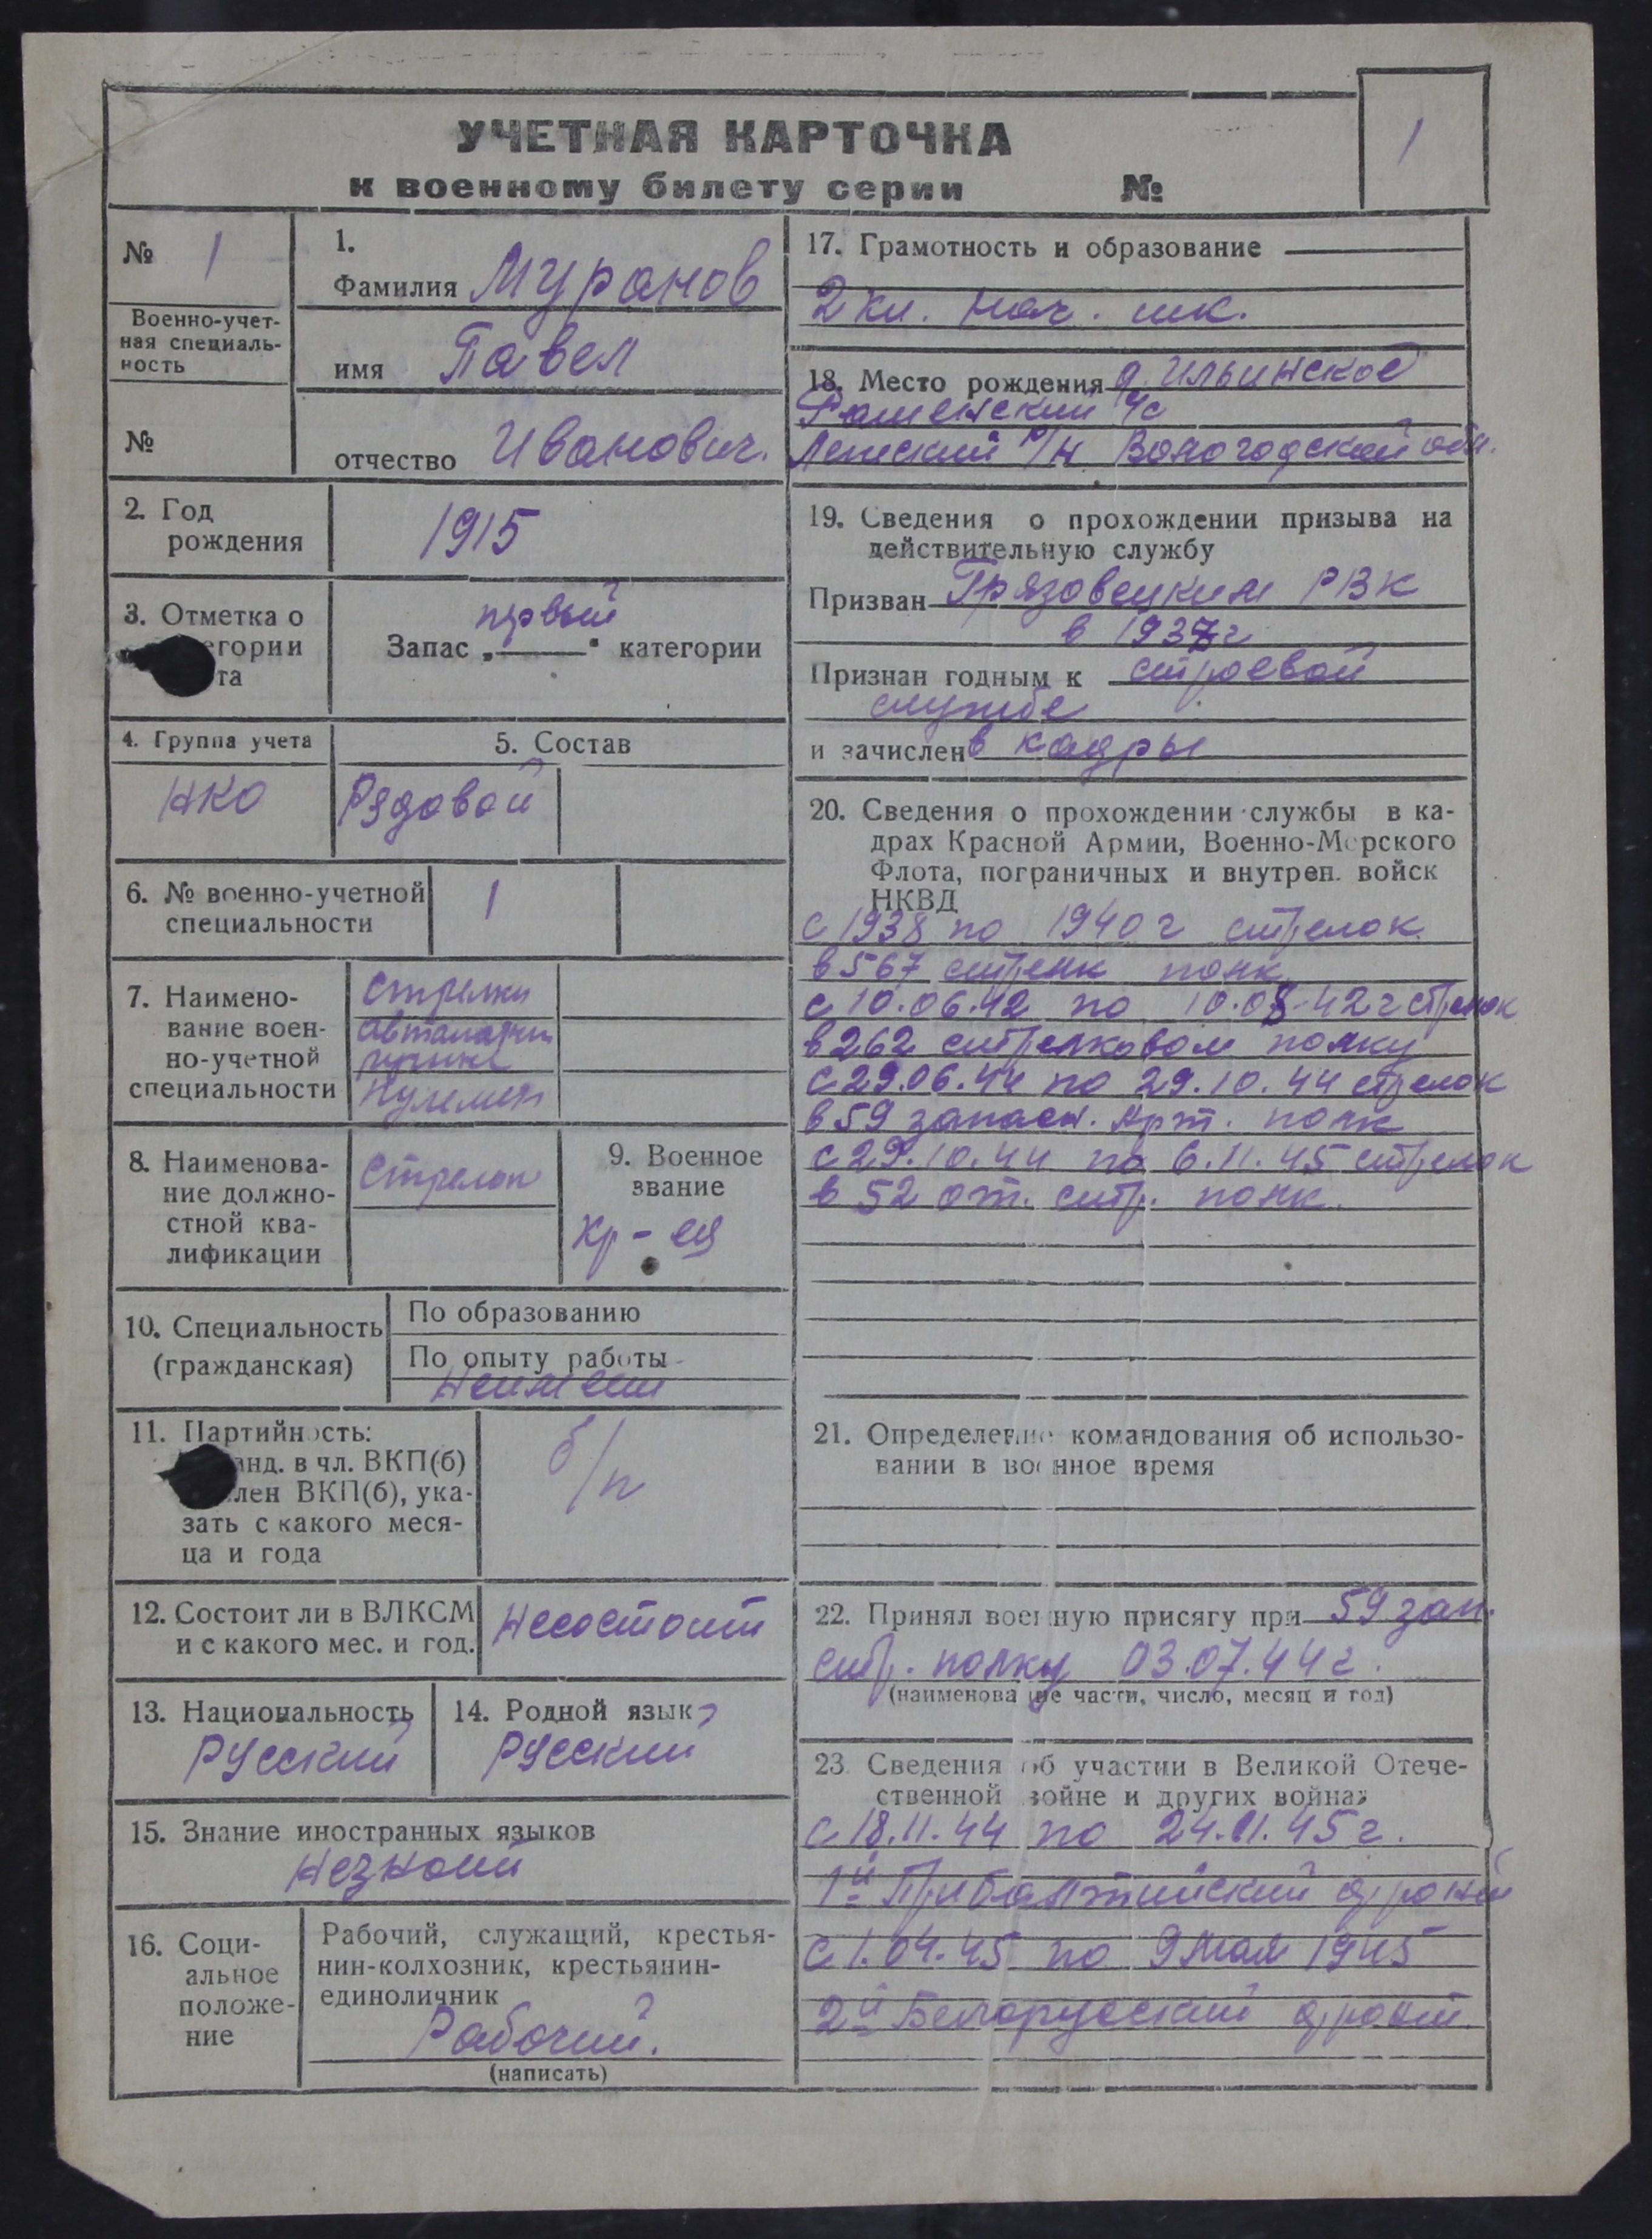 УЧЕТНАЯ КАРТОЧКА
к военному билету серии №
1
№ 1
Военно-учет-
ная специаль-
ность
№
1.
Фамилия Муранов
имя Павел
отчество Иванович.
2. Год
рождения
1915
3. Отметка о
егории
та
первый
Запас „ " категории
4. Группа учета
НКО
5. Состав
Рядовой
6. № военно-учетной
специальности
1
7. Наимено-
вание воен-
но-учетной
специальности
Стрелки
8. Наименова-
ние должно-
стной ква-
лификации
Стрелок
9. Военное
звание
Кр-ец
10. Специальность
(гражданская)
По образованию
По опыту работы
Неимеет
11. Партийность:
анд. в чл. ВКП(б)
лен ВКП(б), ука-
зать с какого меся-
ца и года
б/п
12. Состоит ли в ВЛКСМ
и с какого мес. и год.
Несостоит
13. Национальность
Русский
14. Родной язык
Русский
15. Знание иностранных языков
Незнает
16. Соци-
альное
положе-
ние
Рабочий, служащий, крестья-
нин-колхозник, крестьянин-
единоличник
Рабочий.
(написать)
17. Грамотность и образование
2 кл. нач. шк.
18. Место рождения д. Ильинское
с/с
р/н Вологодской обл.
19. Сведения о прохождении призыва на
действительную службу
Призван Грязовецким РВК
в 1937г
Признан годным к строевой
службе
и зачислен в кадры
20. Сведения о прохождении службы в ка-
драх Красной Армии, Военно-Морского
Флота, пограничных и внутрен. войск
НКВД
с 1938 по 1940 г стрелок
в 567 стрелк полк
с 10.06.42 по 10.08.42 г стрелок
в 262 стрелковом полку
с 29.06.44 по 29.10.44 стрелок
в 59 запасн. Арт. полк
с 29.10.44 по 6.11.45 стрелок
в 52 от. стр. полк.
21. Определение командования об использо-
вании в военное время
22. Принял военную присягу при 59 зап.
стр. полку 03.07.44г.
(наименование части, число, месяц и год)
23. Сведения об участии в Великой Отече-
ственной войне и других войнах
с 18.11.44 по 24.11.45г.
1й Прибалтийский фронт
с 1.04.45 по 9 мая 1945
2й Белорусский фронт.